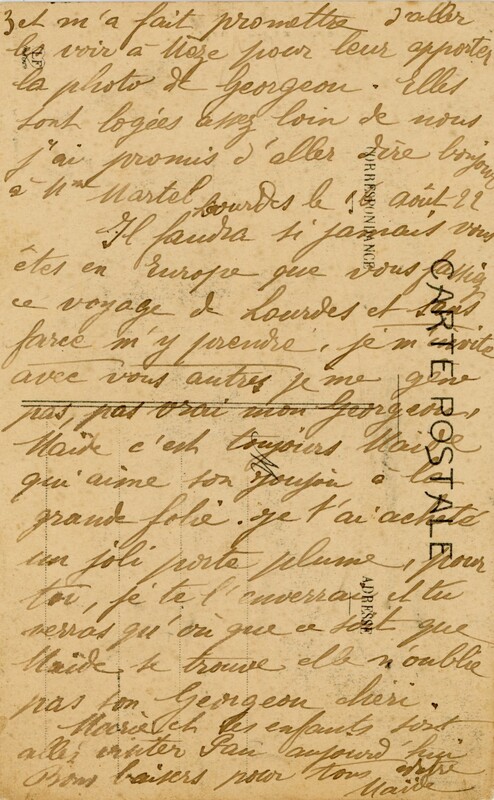 3 et m'a fait promettre d'aller
les voir à Mèze pour leur apporter
la photo de Georgeon. Elles
sont logées assez loin de nous
j'ai promis d'aller dire bonjour
à Mme Martel
Lourdes le août 22
Il faudra si jamais vous
êtes en Europe que vous fassiez
ce voyage de Lourdes et sans
farce m'y prendre, je m'invite
avec vous autres je me gêne
pas, pas vrai mon Georgeon,
Naïde c'est toujours Naïde
qui aime son joujou à la
grande folie. je t'ai acheté
un joli porte plume, pour
toi, je te l'enverrai et tu
verras qu'où que ce soit que
Naïde se trouve elle n'oublie
pas son Georgeon chéri.
Marie et les enfants sont
allés visiter Pau aujourd'hui
Bons baisers pour tous votre
Naïde
CARTE POSTALE
CORRESPONDANCE
ADRESSE